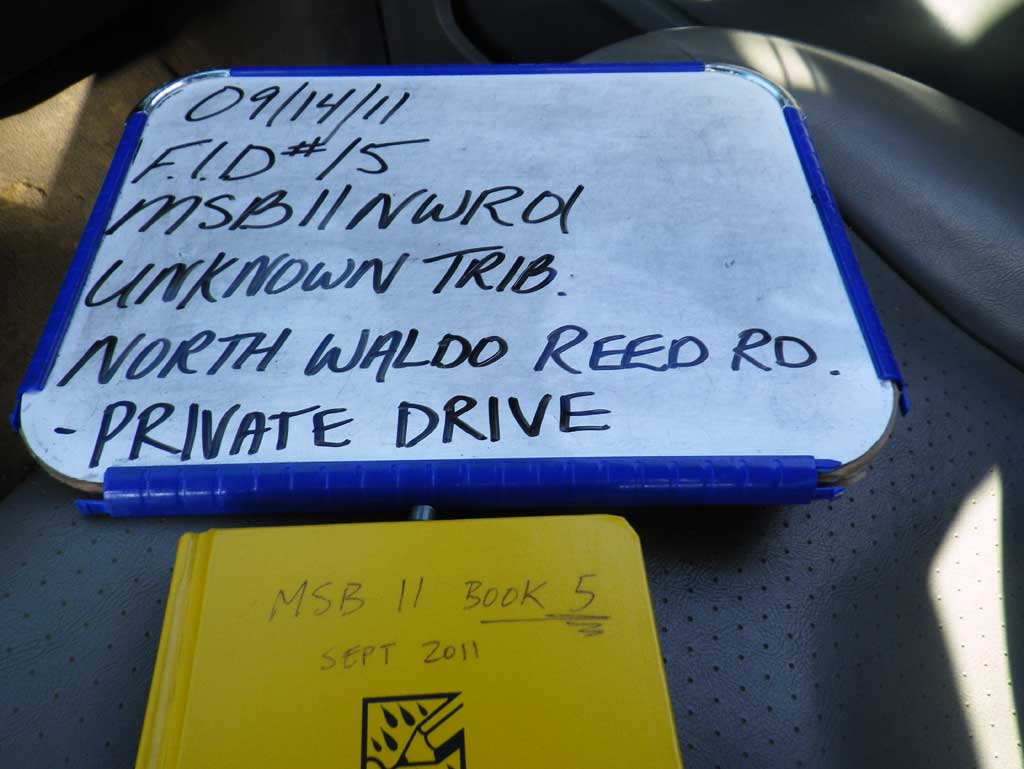 09/14/11
F.I.D #15
MSB11NWR01
UNKNOWN TRIB.
NORTH WALDO REED RD.
- PRIVATE DRIVE
MSB 11 BOOK 5
SEPT 2011